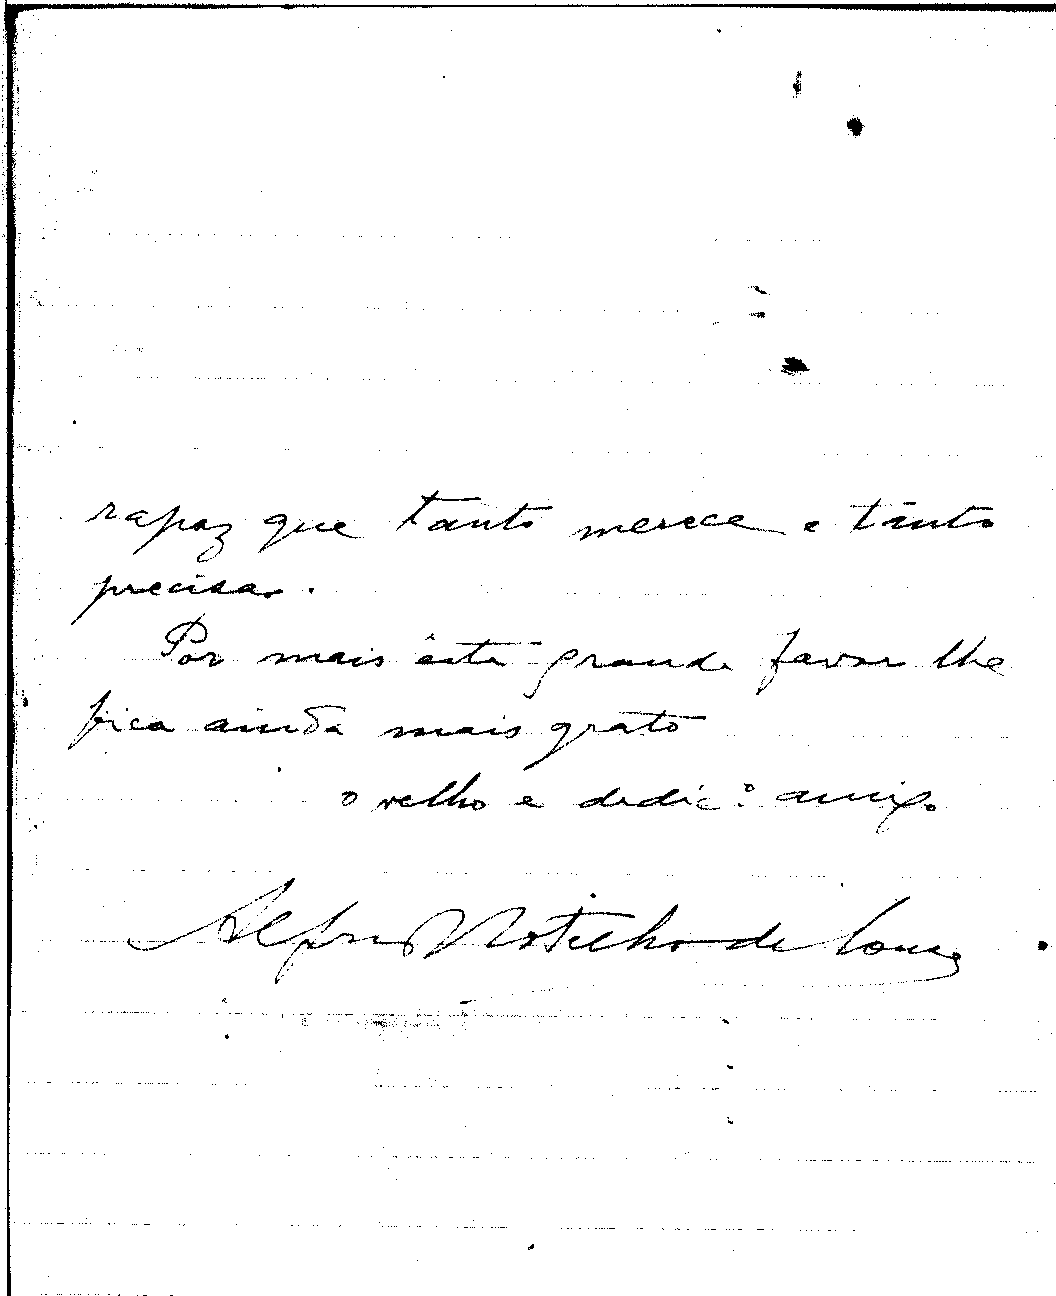 rapaz que tanto merece e tanto
precisa.
Por mais êste grande favor lhe
fica ainda mais grato
o velho e dedic.º amigo
Alfredo Botelho de Sousa